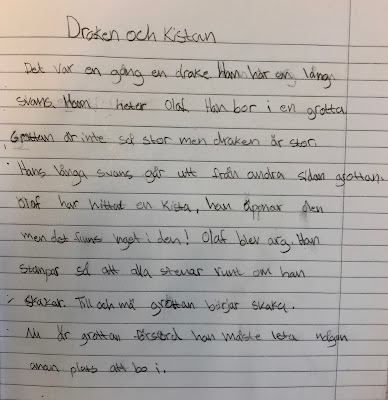 Draken och Kistan
Det var en gång en drake Han har en lång
svans. Han heter Olaf Han bor i en grotta
Grottan är inte så stor men draken är stor.
Hans långa svans går utt från andra sidan grottan.
Olaf har hittat en kista, han öppnar den
men det finns inget i den! Olaf blev arg. Han
stampar så att alla stenar runt om han
skakar. Till och mä grottan börjar skaka.
Nu är grottan förstörd han måste leta någon
anan plats att bo i.